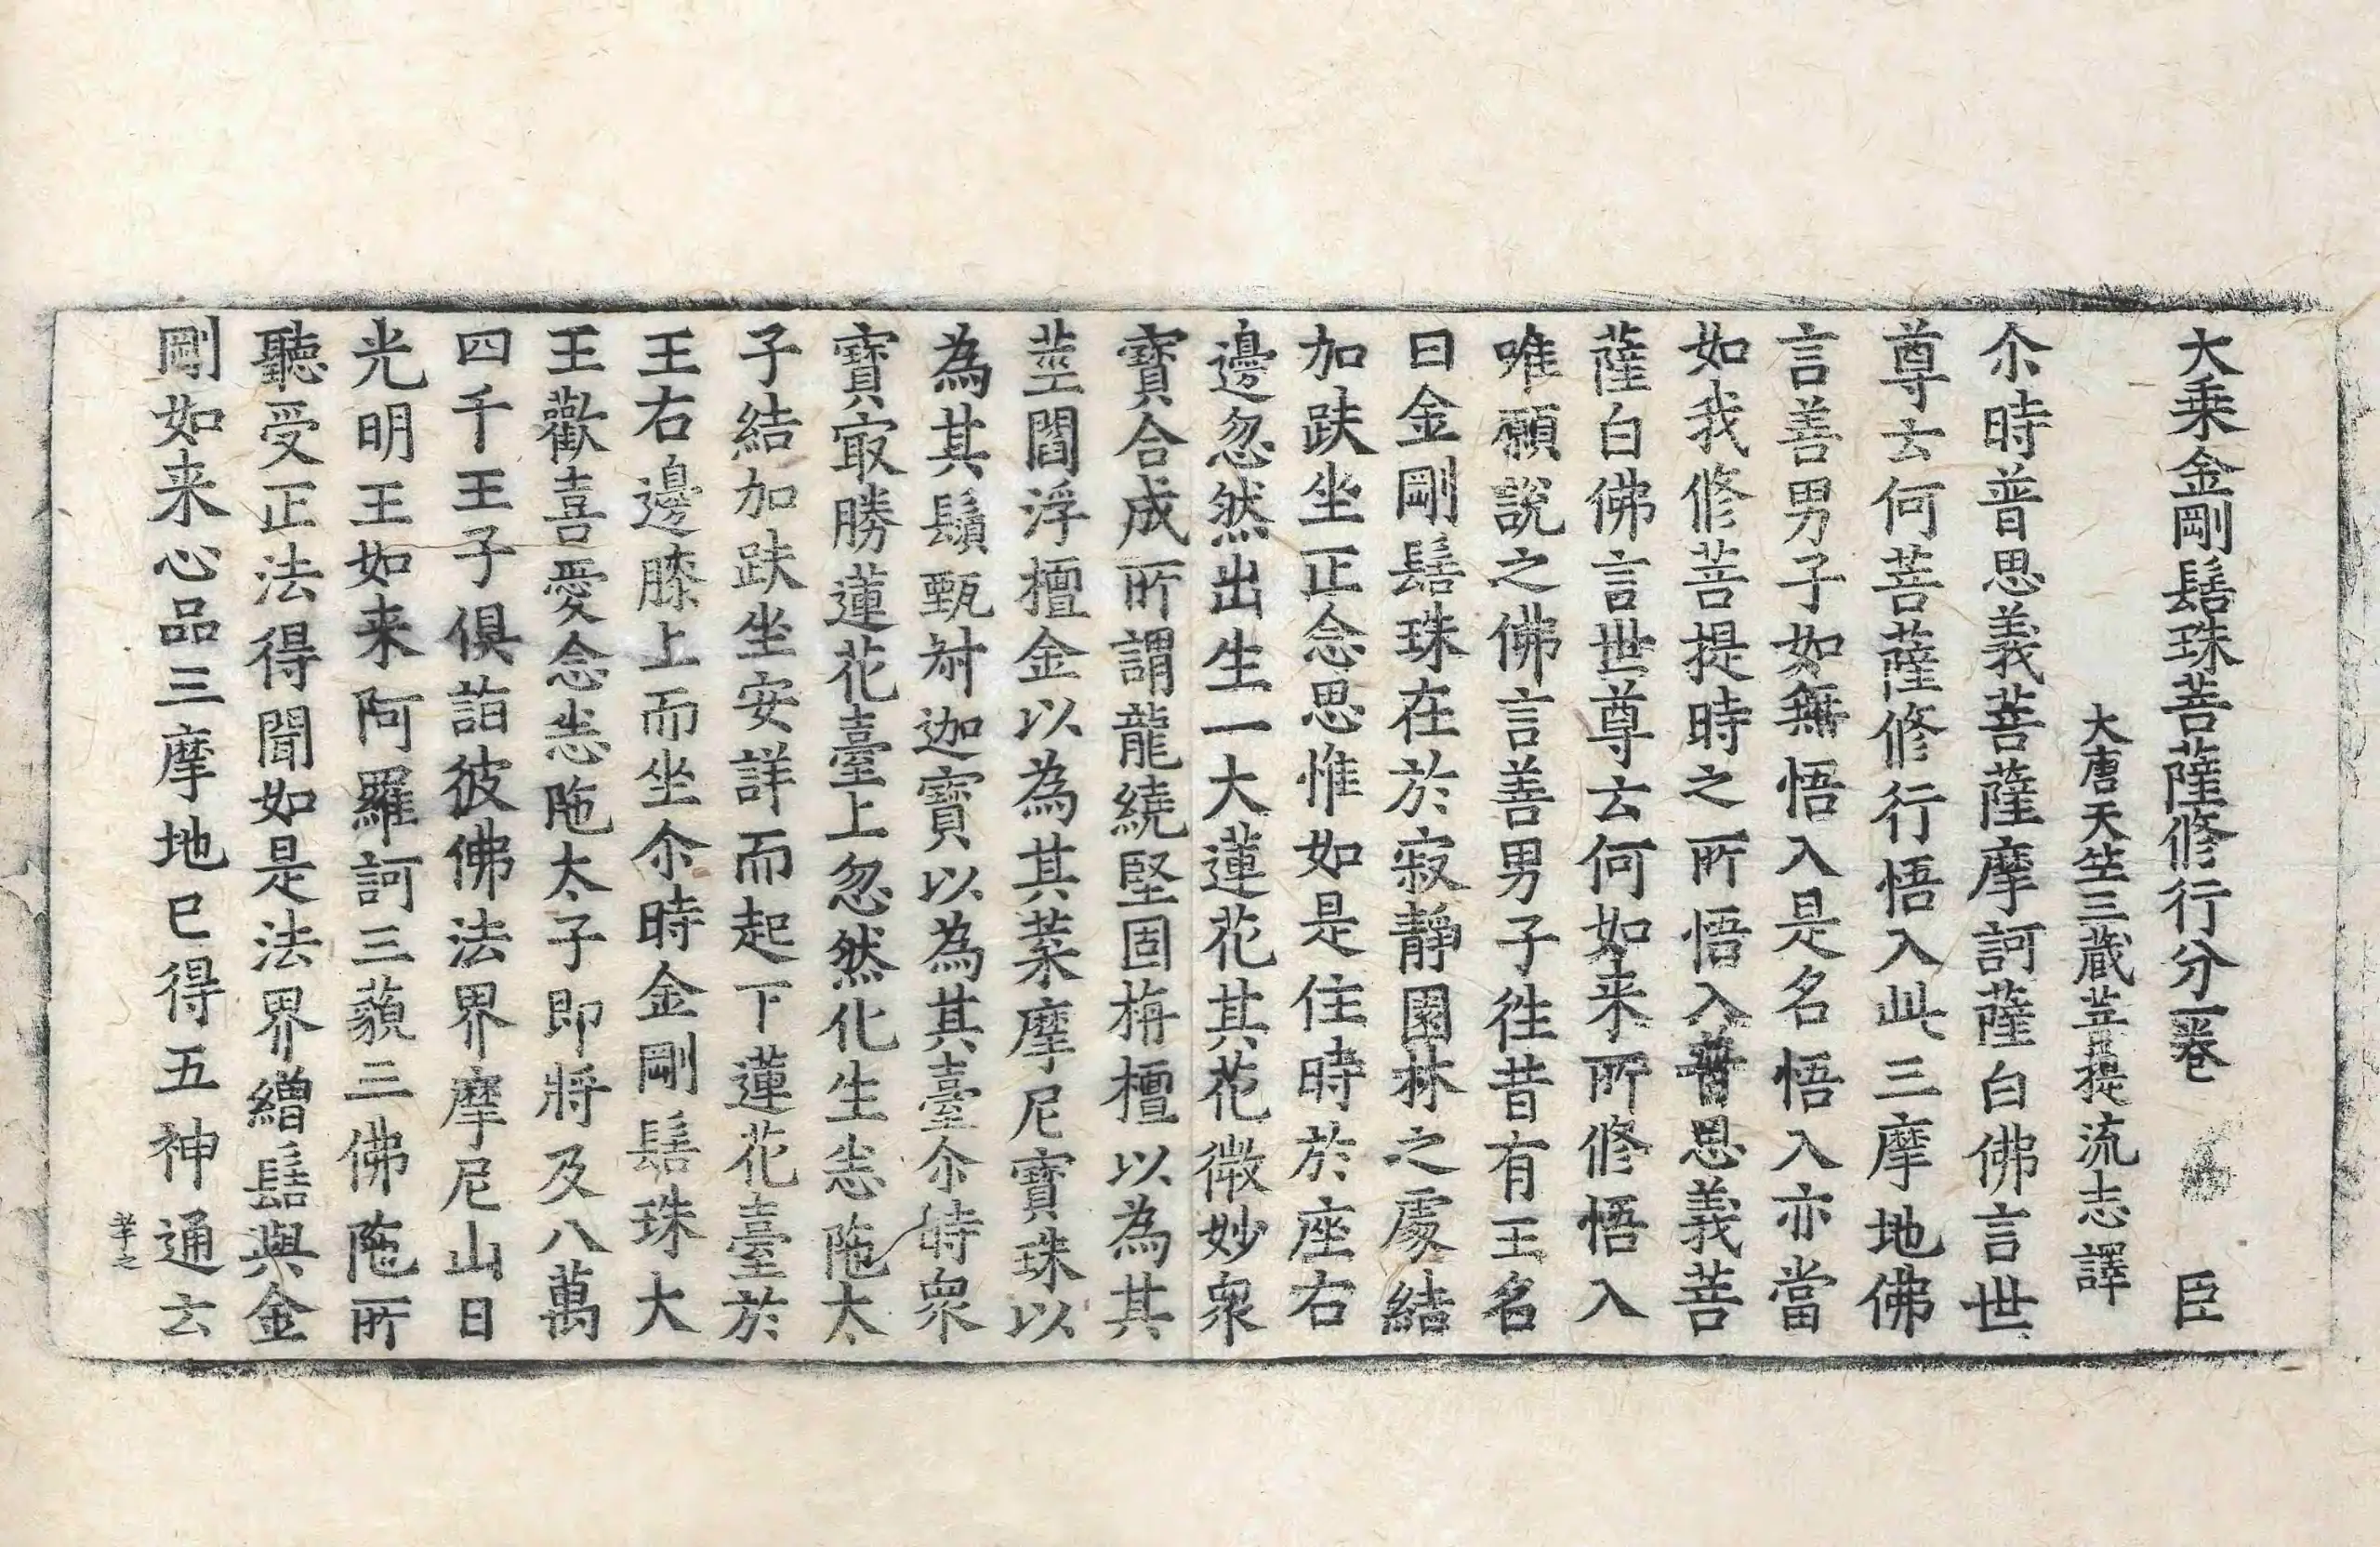 大乗金剛髻珠菩薩修行分一卷　臣
大唐天竺三藏菩提流志譯
尒時普思義菩薩摩訶薩白佛言世
尊云何菩薩修行悟入此三摩地佛
言善男子如無悟入是名悟入亦當
如我修菩提時之所悟入普思義菩
薩白佛言世尊云何如来所修悟入
唯願說之佛言善男子徃昔有王名
曰金剛髻珠在於寂靜園林之處結
加趺坐正念思惟如是住時於座右
邊忽然出生一大蓮花其花微妙衆
寶合成所謂龍繞堅固栴檀以為其
莖閻浮檀金以為其葉摩尼寶珠以
為其鬚甄叔迦寶以為其臺尒時衆
寶㝡勝蓮花臺上忽然化生恙陁太
子結加趺坐安詳而起下蓮花臺於
王右邊膝上而坐尒時金剛髻珠大
王歡喜愛念恙陁太子即將及八萬
四千王子俱詣彼佛法界摩尼山日
光明王如来阿羅訶三藐三佛陁所
聽受正法得聞如是法界繒髻與金
剛如来心品三摩地已得五神通云